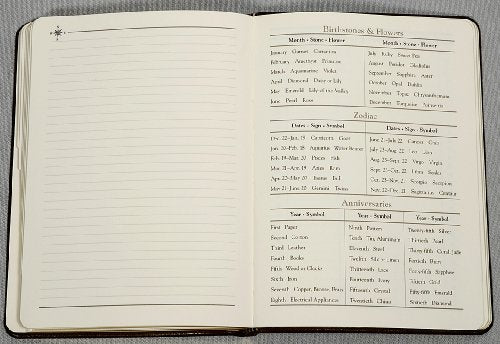 Birthstones & Flowers
Month - Stone - Flower
January Garnet Carnation
February Amethyst Primrose
March Aquamarine Violet
April Diamond Daisy or Lily
May Emerald Lily of the Valley
June Pearl Rose
Month - Stone - Flower
July Ruby Sweet Pea
August Peridot Gladiolus
September Sapphire Aster
October Opal Dahlia
November Topaz Chrysanthemum
December Turquoise
Zodiac
Dates - Sign - Symbol
Dec. 22-Jan. 19 Capricorn Goat
Jan. 20-Feb. 18 Aquarius Water Bearer
Feb. 19-Mar. 20 Pisces Fish
Mar. 21-Apr. 19 Aries Ram
Apr. 20-May 20 Taurus Bull
May 21-June 20 Gemini Twins
Dates - Sign - Symbol
June 21-July 22 Cancer Crab
July 23-Aug. 22 Leo Lion
Aug. 23-Sept. 22 Virgo Virgin
Sept. 23-Oct. 22 Libra Scales
Oct. 23-Nov. 21 Scorpio Scorpion
Nov. 22-Dec. 21 Sagittarius Centaur
Anniversaries
Year - Symbol
First Paper
Second Cotton
Third Leather
Fourth Books
Fifth Wood or Clocks
Sixth Iron
Seventh Copper, Bronze, Brass
Eighth Electrical Appliances
Year - Symbol
Ninth Pottery
Tenth Tin, Aluminum
Eleventh Steel
Twelfth Silk or Linen
Thirteenth Lace
Fourteenth Ivory
Fifteenth Crystal
Twentieth China
Year - Symbol
Twenty-fifth Silver
Thirtieth Pearl
Thirty-fifth Coral, Jade
Fortieth Ruby
Forty-fifth Sapphire
Fiftieth Gold
Fifty-fifth Emerald
Sixtieth Diamond